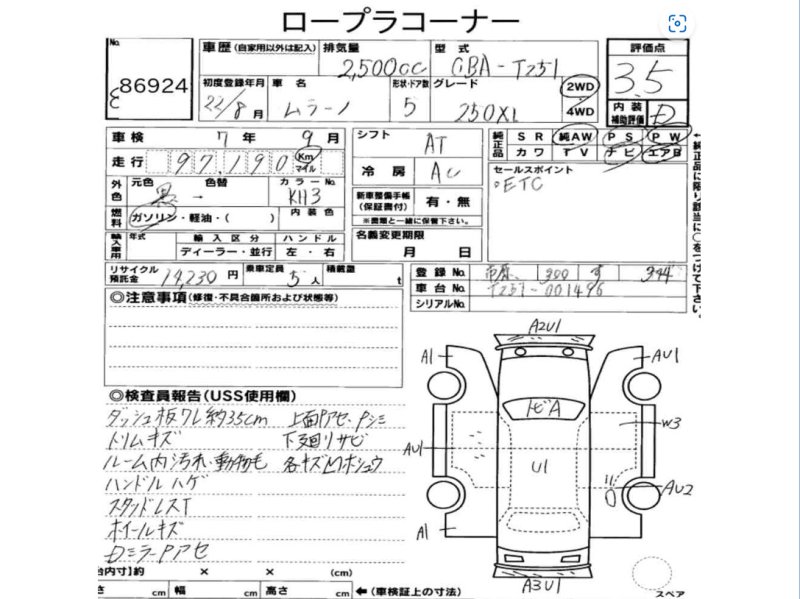 ロープラコーナー
No.
86924
車歴(自家用以外は記入)
排気量
2,500cc
型 式
CBA-TZ51
評価点
3.5
初度登録年月
22/8月
車 名
ムラーノ
形状・ドア数
5
グレード
250XL
2WD
4WD
内 装
補助評価
D
車 検
7年 9月
走 行
97,190
Km
マイル
シフト
AT
冷 房
純正品
S R 純AW P S P W
カ ワ T V ナ ビ エアB
セールスポイント
◦ETC
外色
元色 色替
黒 →
カラーNo.
KH3
燃料
ガソリン・軽油・( )
内 装 色
新車整備手帳
(保証書付)
有・無
※書類と一緒に保管下さい。
名義変更期限
月 日
輸入車用
年式
輸 入 区 分
ハ ン ド ル
ディーラー・並行
左 ・ 右
リサイクル
預託金
円
乗車定員
5人
積載量
t
登 録 No.
300 す 344
車 台 No.
TZ51-001496
シリアルNo.
←純正品に限り該当に○をつけて下さい。
◎注意事項(修復・不具合箇所および状態等)
◎検査員報告(USS使用欄)
ダッシュ板ワレ約35cm 上面Pアセ・Pシミ
トリムキズ 下廻りサビ
ルーム内汚れ・動物毛 各キズMホシュウ
ハンドルハゲ
スタッドレスT
ホイールキズ
DミラーPアセ
A2U1
A1
AU1
トビA
W3
AU1
U1
AU2
A1
A3U1
スペア
台内寸)約 × × (cm)
さ cm 幅 cm 高さ cm ←(車検証上の寸法)